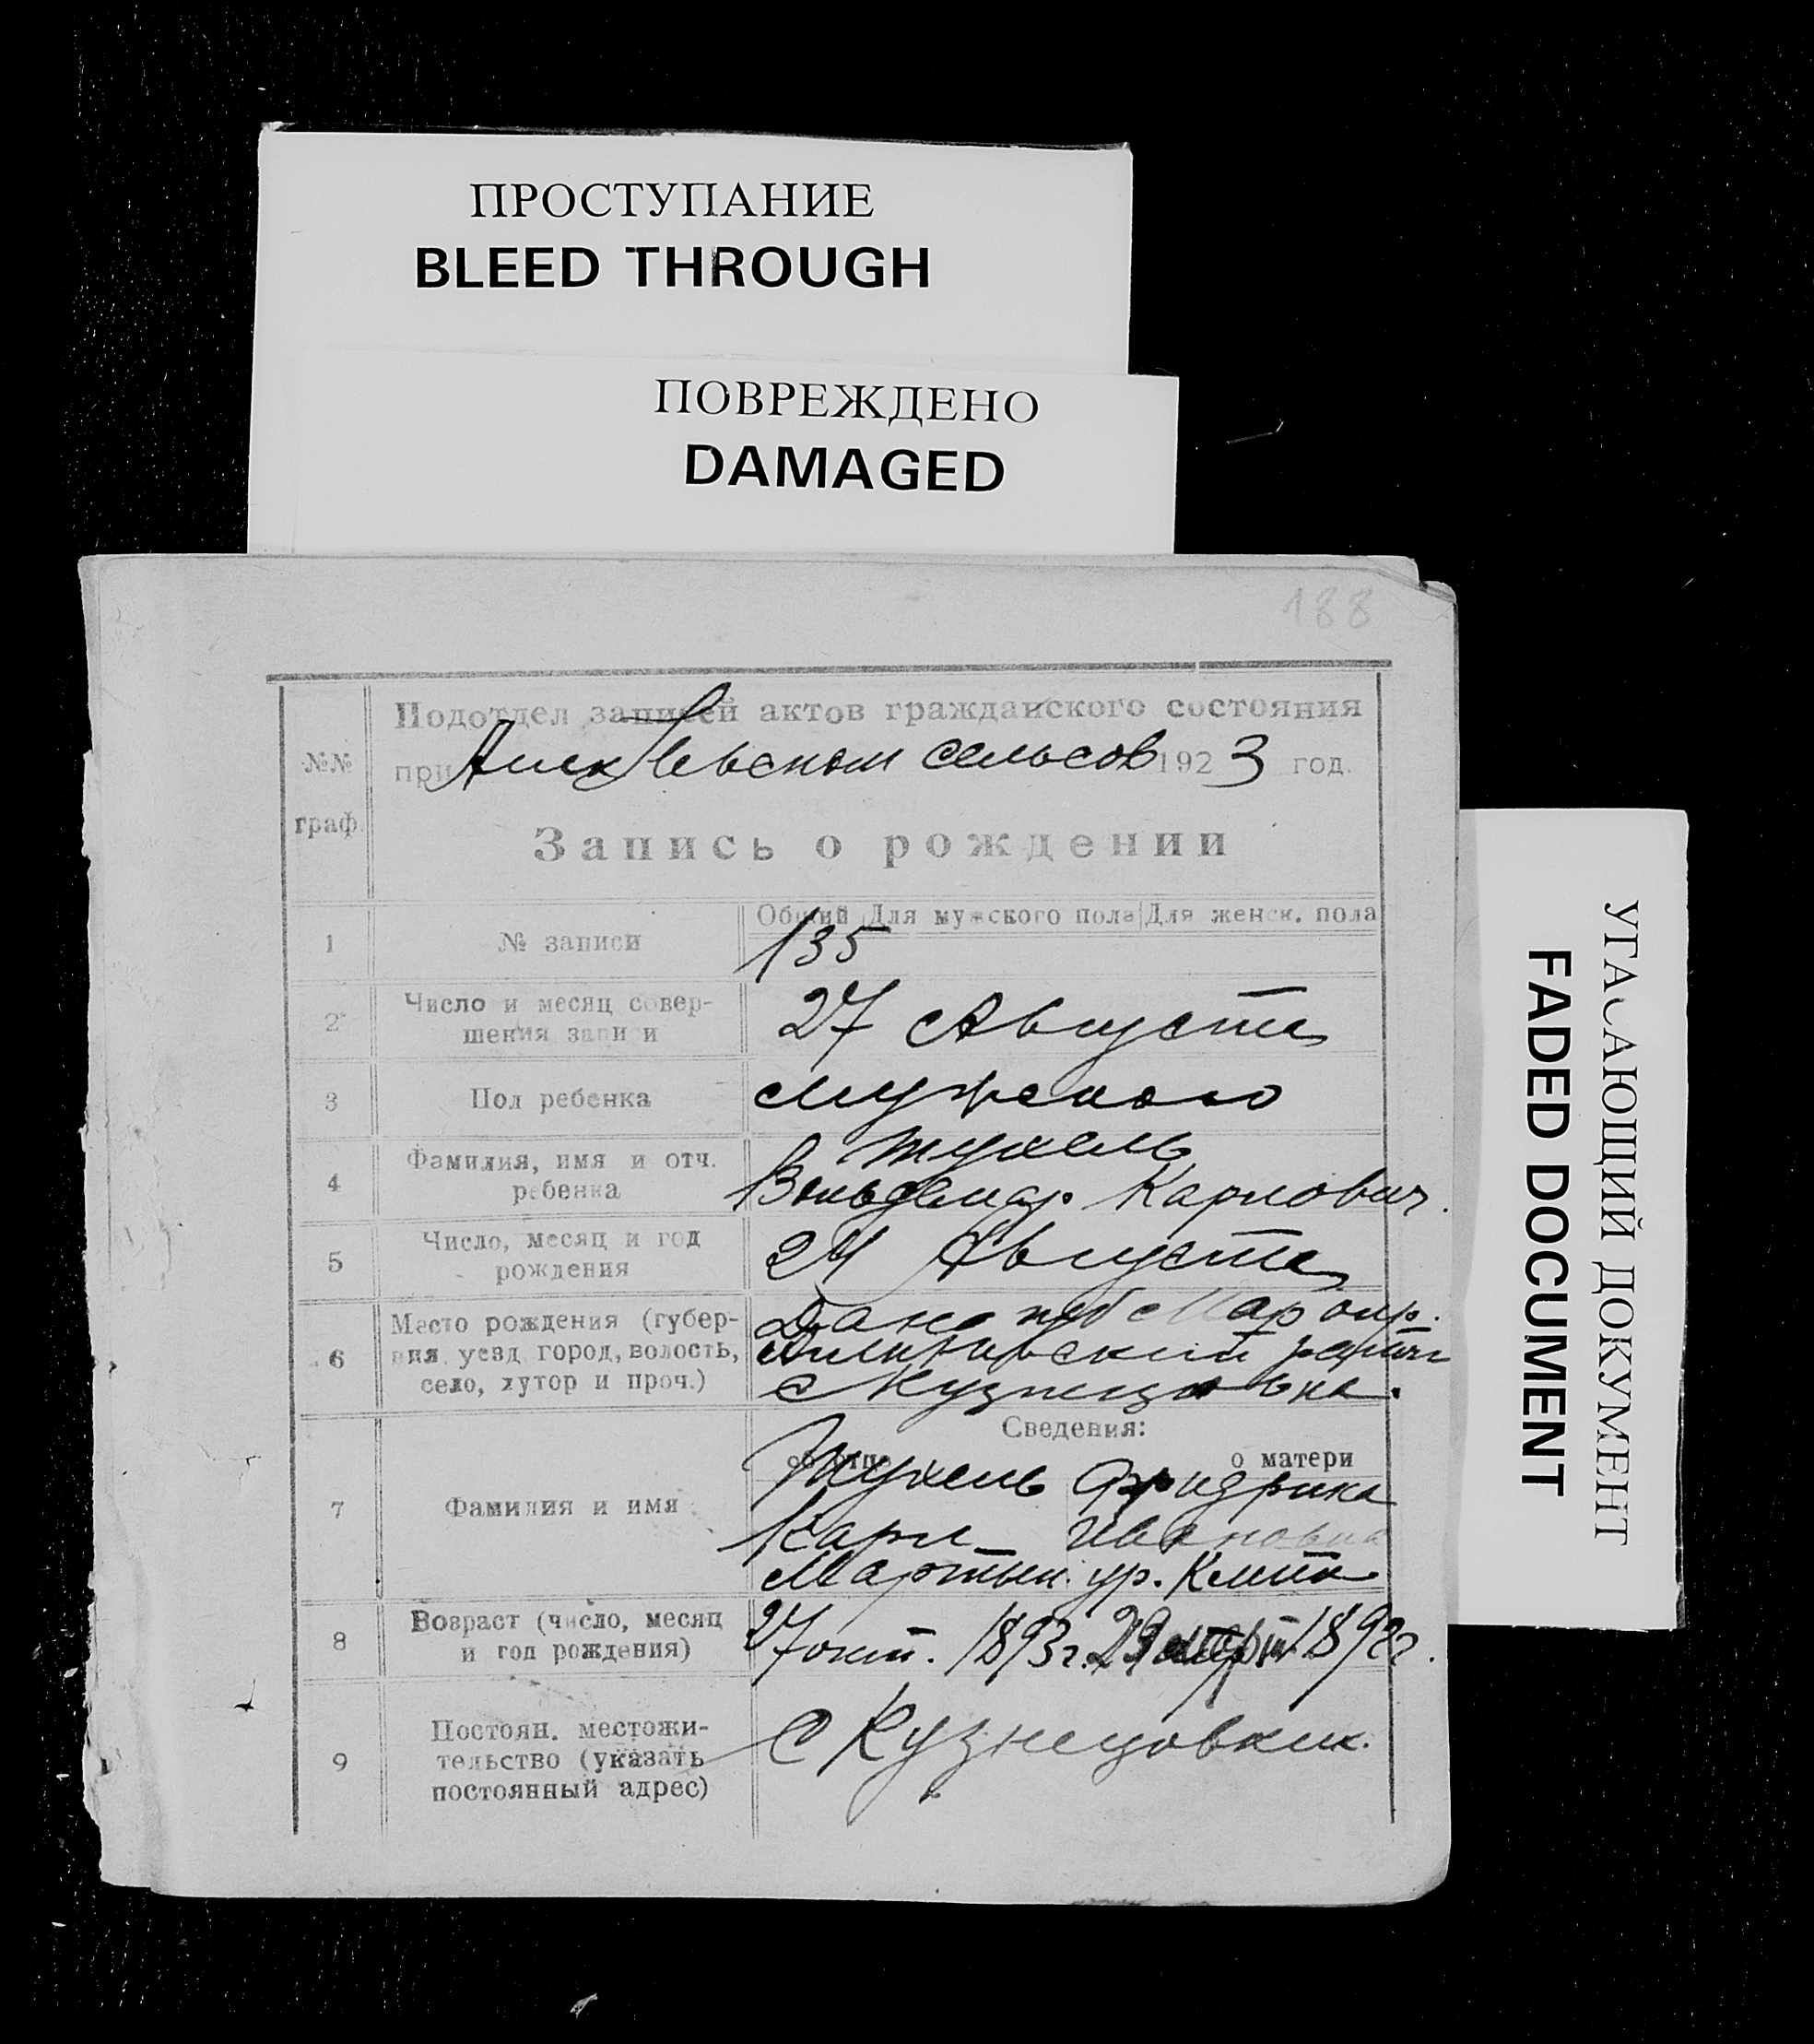 ПРОСТУПАНИЕ
BLEED THROUGH
ПОВРЕЖДЕНО
DAMAGED
188
Подотдел записей актов гражданского состояния
№№
при сельсов 1923 год.
граф.
Запись о рождении
Общий Для мужского пола Для женск. пола
1 № записи 135
2 Число и месяц совер-
шения записи
27 Августа
3 Пол ребенка мужского
4 Фамилия, имя и отч.
ребенка
Тухель
Вольдемар Карлович.
5 Число, месяц и год
рождения
24 Августа
6 Место рождения (губер-
ния, уезд, город, волость,
село, хутор и проч.)
Дано губ Мар окр.
район
с Кузнецовка.
Сведения:
об отце о матери
7 Фамилия и имя
Тухель Фридрика
Карл Ивановна
Мартын. ур.
8 Возраст (число, месяц
и год рождения)
27 окт. 1893 г. 29 1892 г.
9 Постоян. местожи-
тельство (указать
постоянный адрес)
С Кузнецовкик.
УГАСАЮЩИЙ ДОКУМЕНТ
FADED DOCUMENT